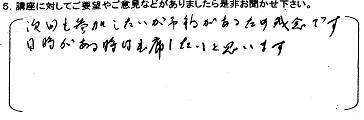 5. 講座に対してご要望やご意見などがありましたら是非お聞かせ下さい。
次回も参加したいが予約がある為残念です
日時がある時は出席したいと思います